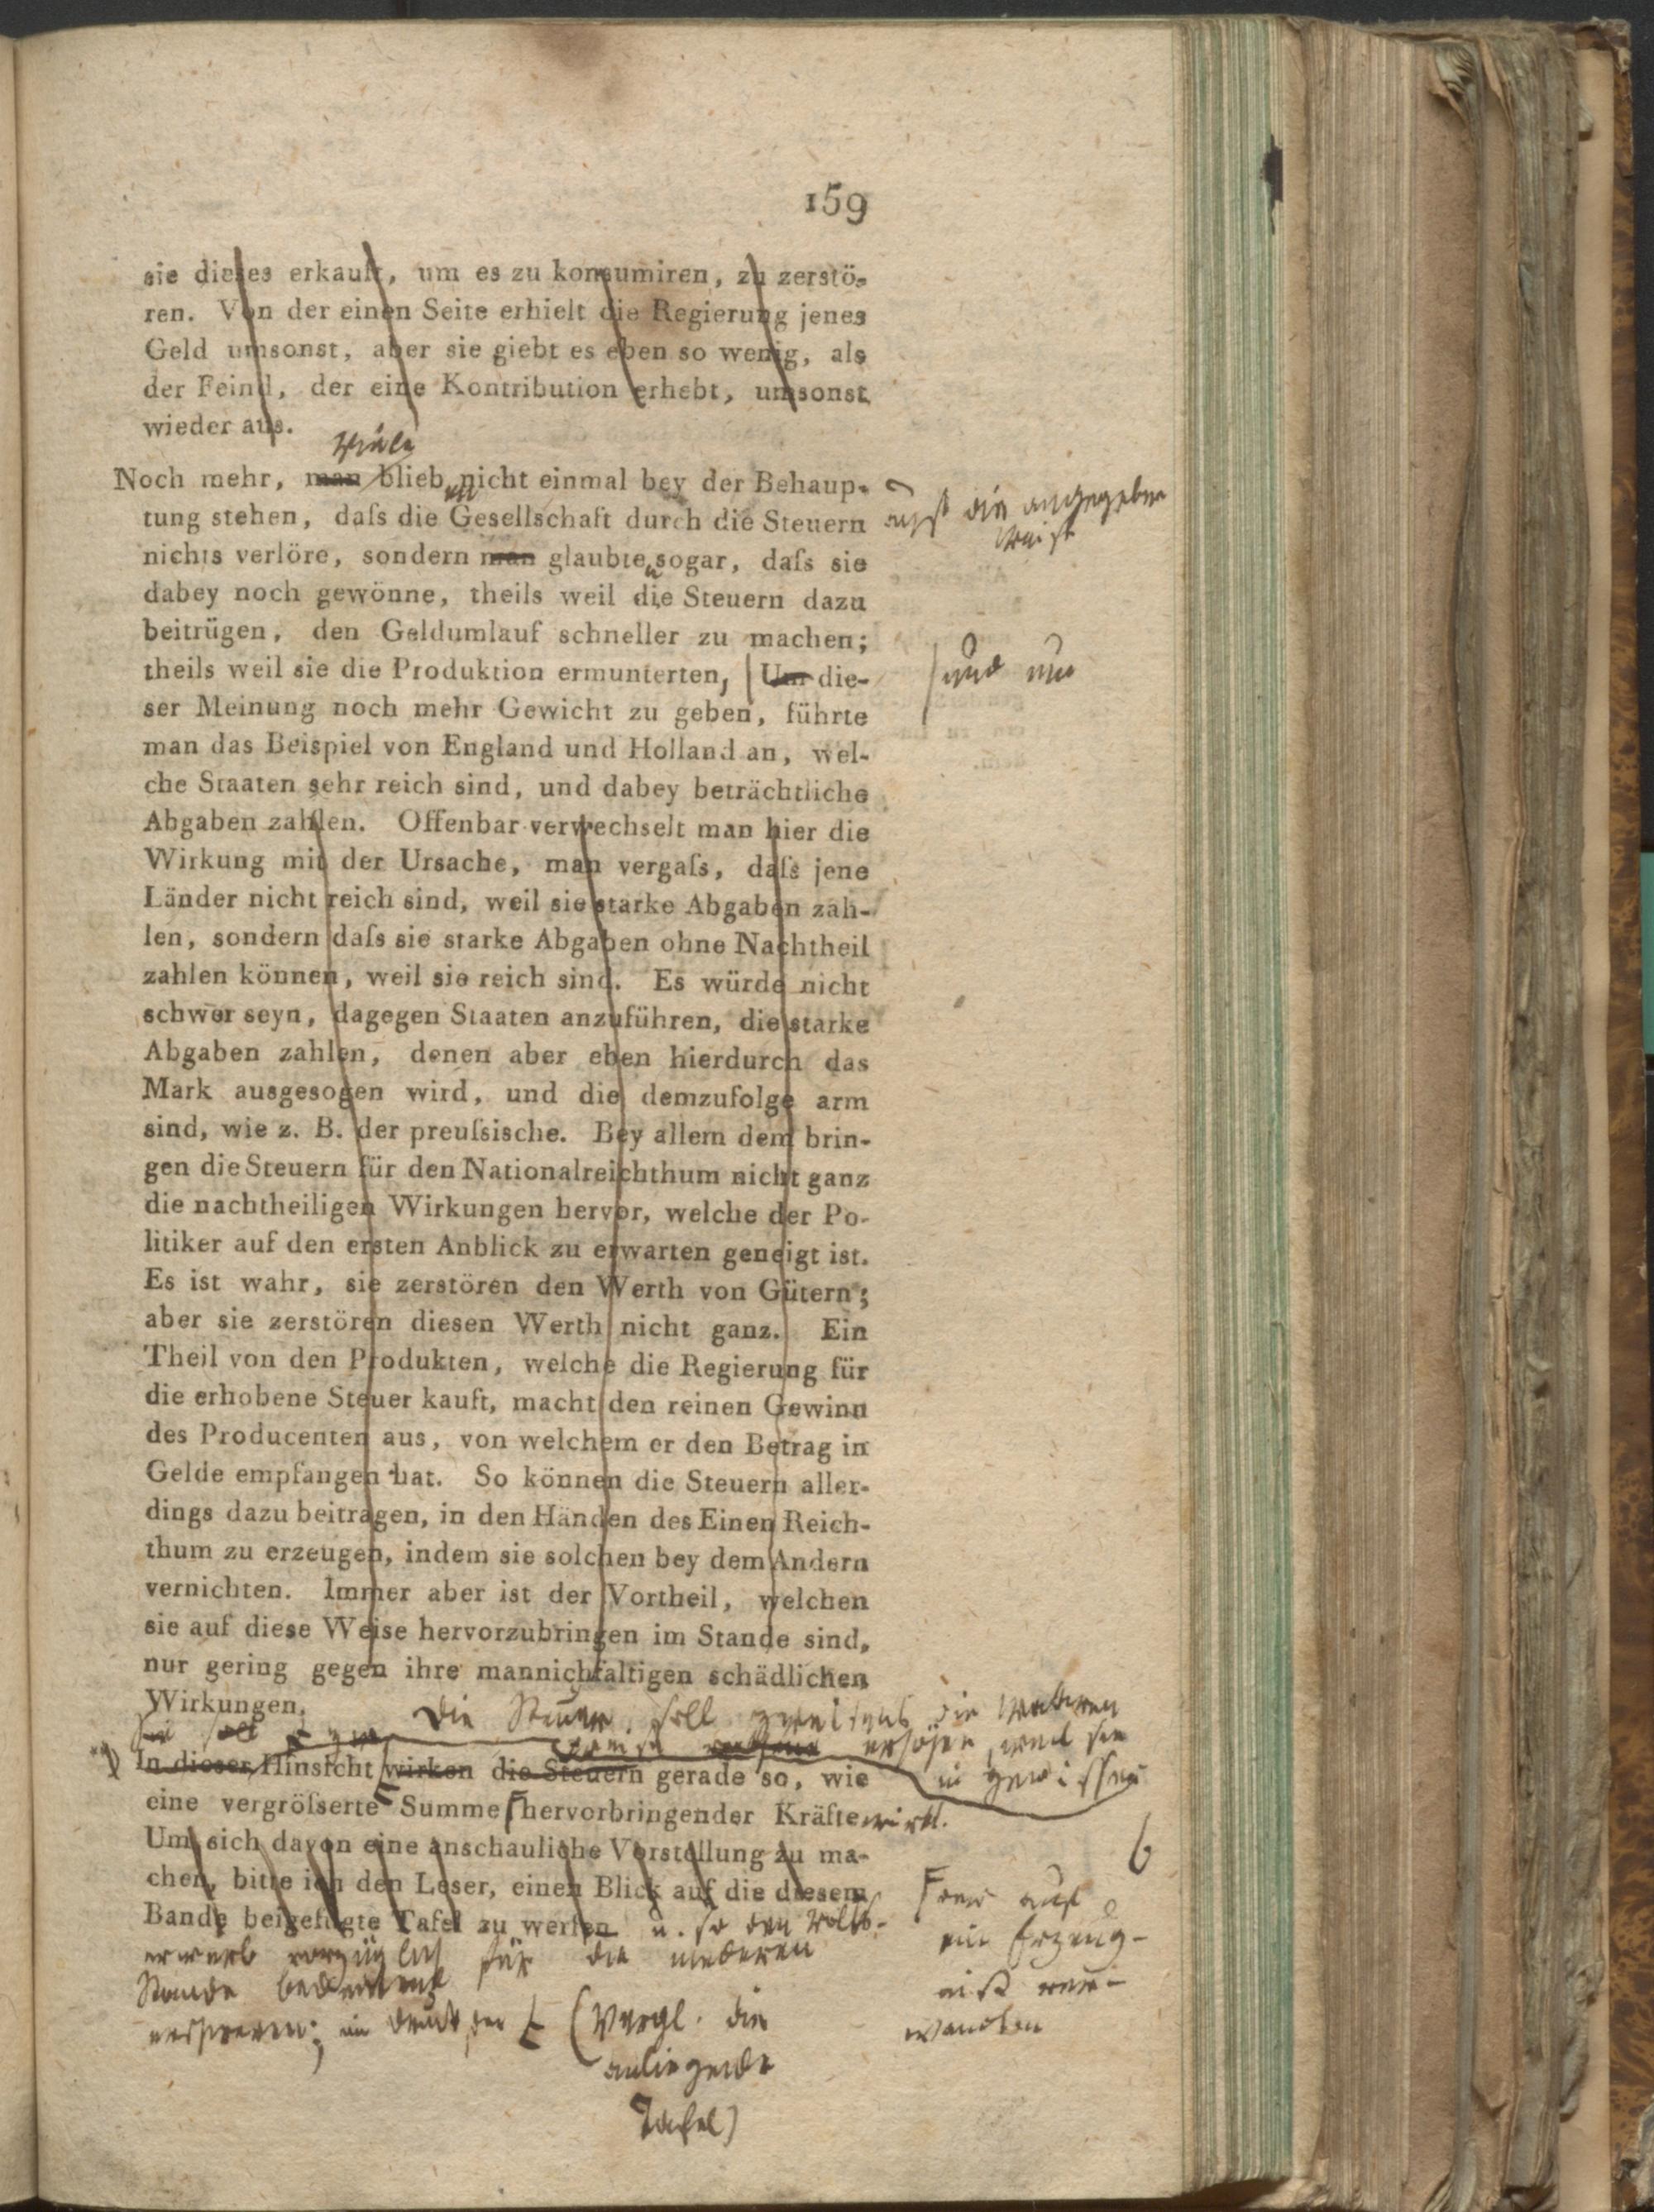 159
sie dieses erkauft, um es zu konsumiren, zu zerstö-
ren. Von der einen Seite erhielt die Regierung jenes
Geld umsonst, aber sie giebt es eben so wenig, als
der Feind, der eine Kontribution erhebt, umsonst
wieder aus.
Noch mehr, man blieb nicht einmal bey der Behaup-
tung stehen, daſs die Gesellschaft durch die Steuern
nichts verlöre, sondern man glaubte sogar, daſs sie
dabey noch gewönne, theils weil die Steuern dazu
beitrügen, den Geldumlauf schneller zu machen;
theils weil sie die Produktion ermunterten, Um die-
und nun
ser Meinung noch mehr Gewicht zu geben, führte
man das Beispiel von England und Holland an, wel-
che Staaten sehr reich sind, und dabey beträchtliche
Abgaben zahlen. Offenbar verwechselt man hier die
Wirkung mit der Ursache, man vergaſs, daſs jene
Länder nicht reich sind, weil sie starke Abgaben zah-
len, sondern daſs sie starke Abgaben ohne Nachtheil
zahlen können, weil sie reich sind. Es würde nicht
schwer seyn, dagegen Staaten anzuführen, die starke
Abgaben zahlen, denen aber eben hierdurch das
Mark ausgesogen wird, und die demzufolge arm
sind, wie z. B. der preuſsische. Bey allem dem brin-
gen die Steuern für den Nationalreichthum nicht ganz
die nachtheiligen Wirkungen hervor, welche der Po-
litiker auf den ersten Anblick zu erwarten geneigt ist.
Es ist wahr, sie zerstören den Werth von Gütern;
aber sie zerstören diesen Werth nicht ganz. Ein
Theil von den Produkten, welche die Regierung für
die erhobene Steuer kauft, macht den reinen Gewinn
des Producenten aus, von welchem er den Betrag in
Gelde empfangen hat. So können die Steuern aller-
dings dazu beitragen, in den Händen des Einen Reich-
thum zu erzeugen, indem sie solchen bey dem Andern
vernichten. Immer aber ist der Vortheil, welchen
sie auf diese Weise hervorzubringen im Stande sind,
nur gering gegen ihre mannichfaltigen schädlichen
Wirkungen.
Die Steuer soll die
in gewisser
In dieser Hinsicht wirken die Steuern gerade so, wie
eine vergröſserte Summe hervorbringender Kräfte wirkt.
Um sich davon eine anschauliche Vorstellung zu ma-
chen, bitte ich den Leser, einen Blick auf die diesem
Bande beigefügte Tafel zu werfen u. so den Volks-
erwerb vorzüglich für die niederen
Stände bedeutend
(Vergl. die
anliegende
Tafel)
auf
ein Erzeug-
niß